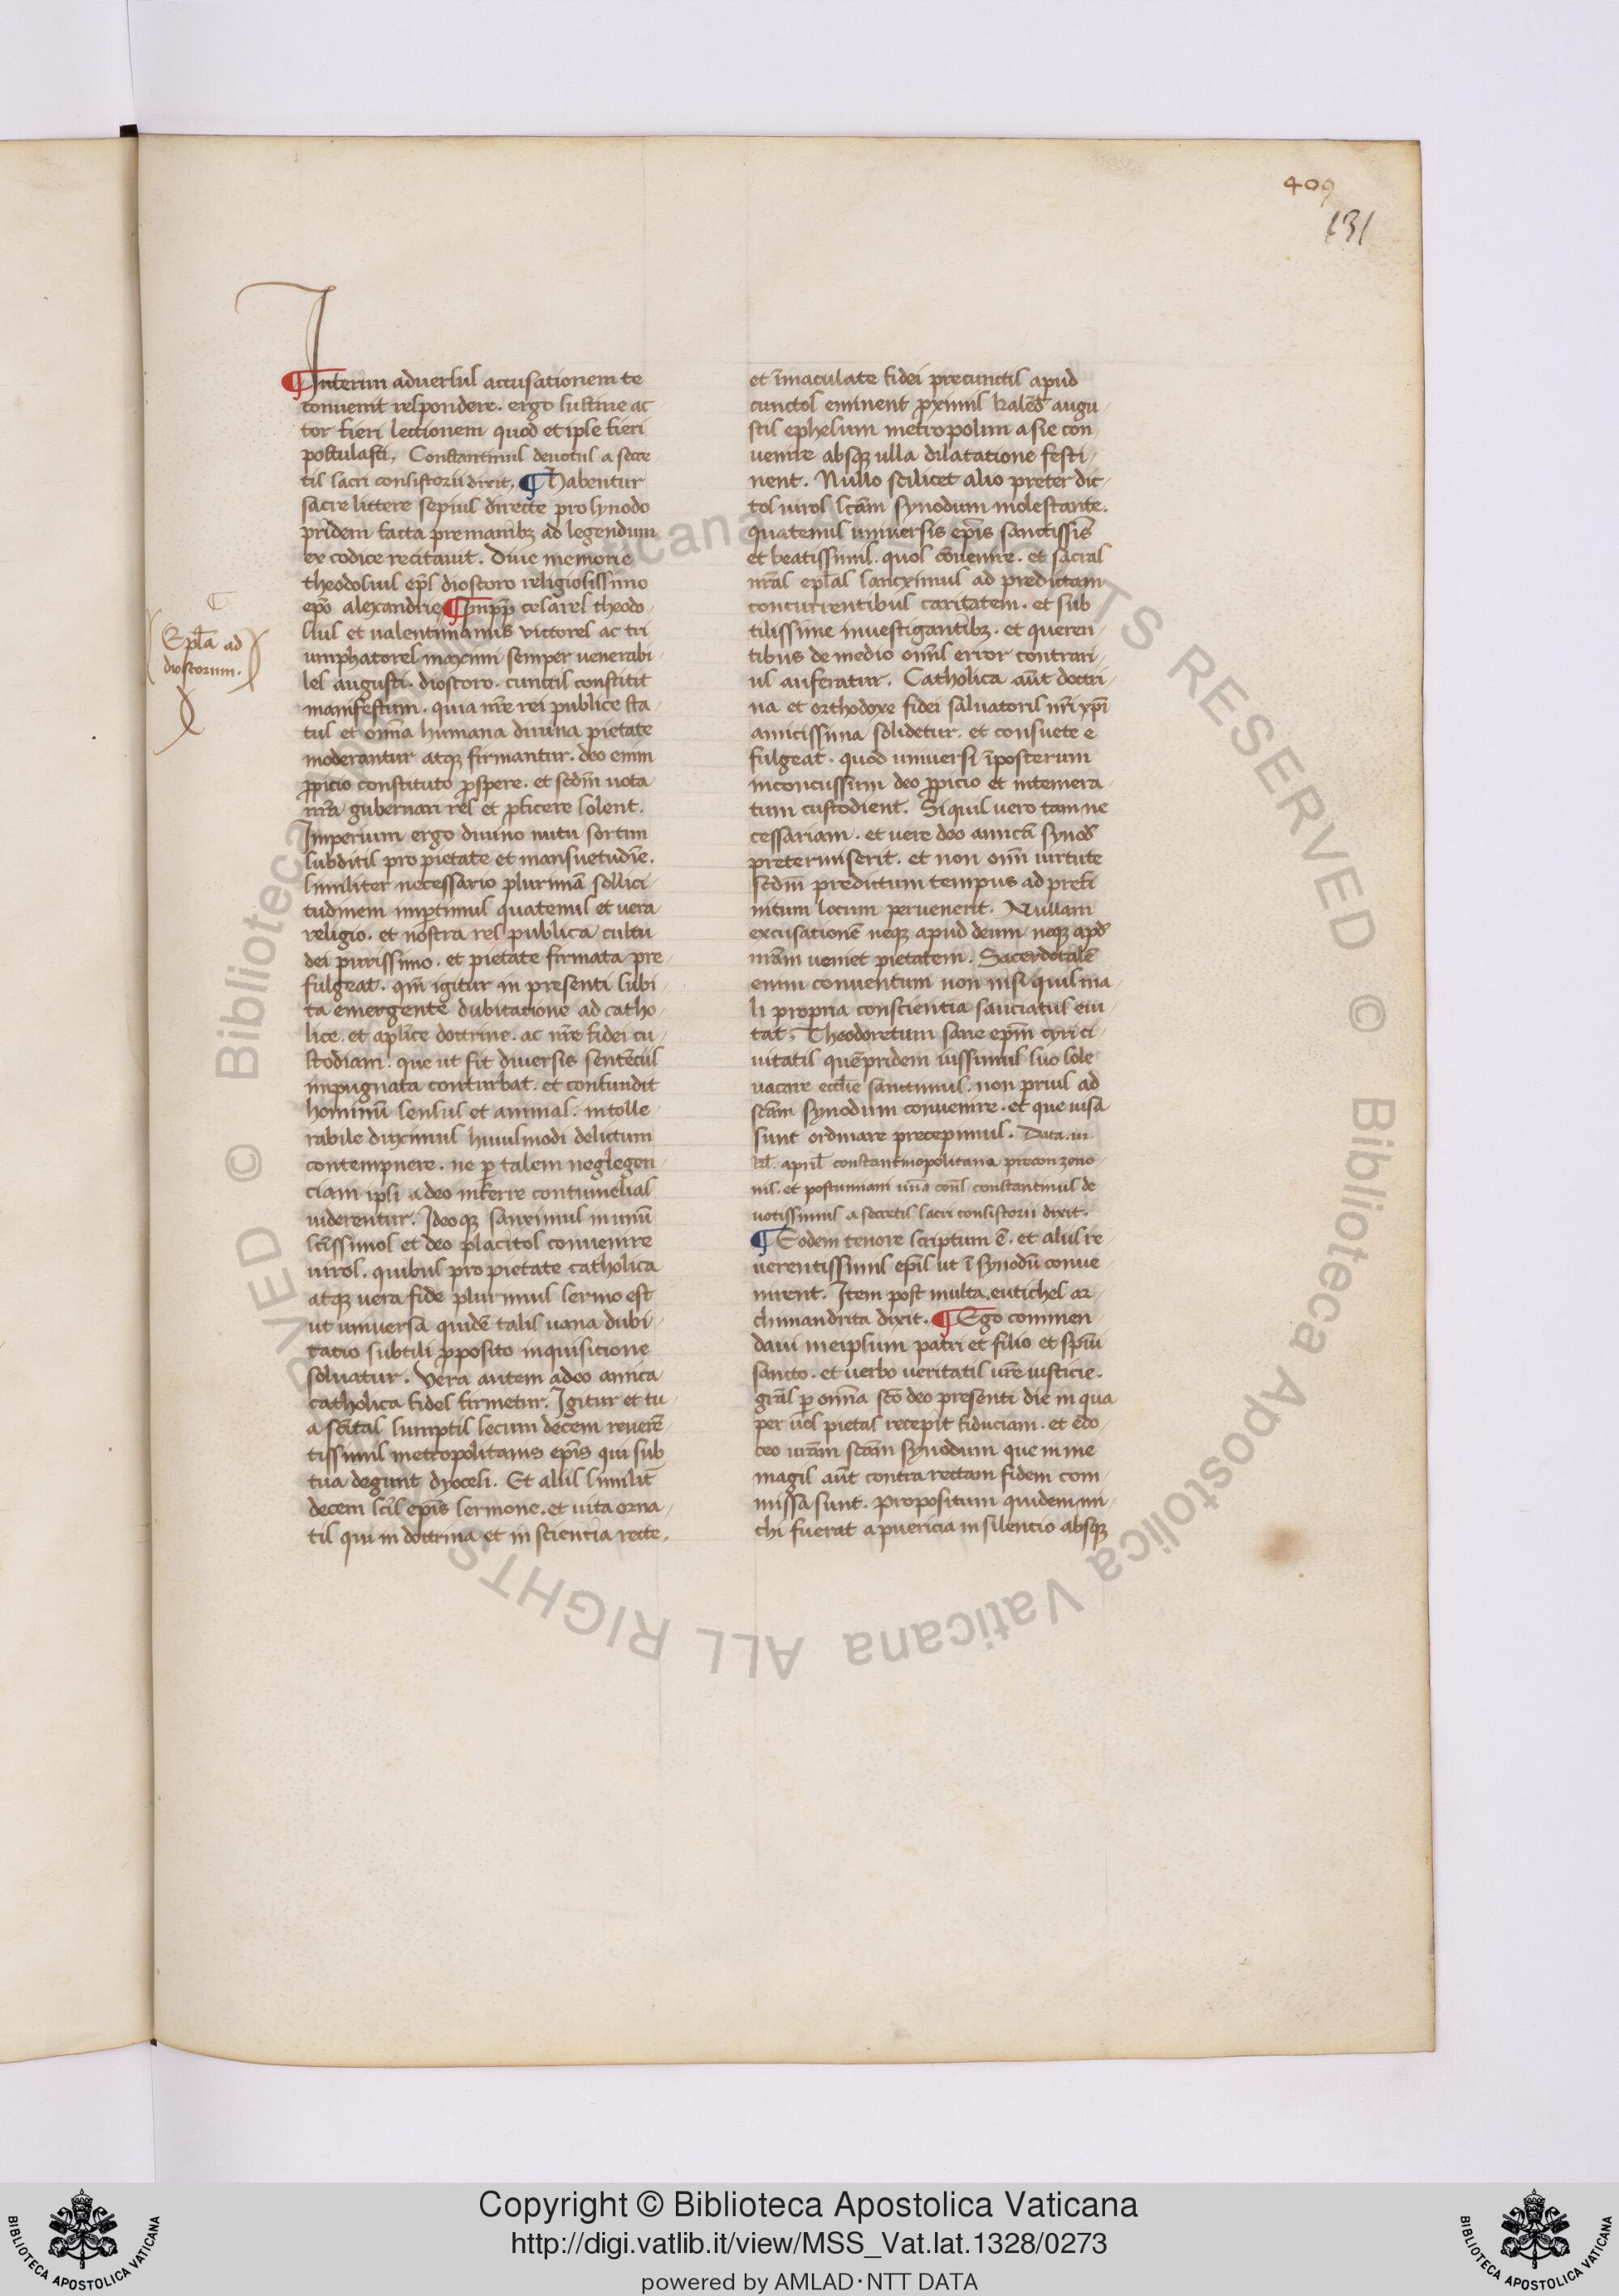 409
131
Interim adversus accusationem te
convenit respondere. ergo sustine ac
tor fieri lectionem quod et ipse fieri
postulasti. Constantinus devotus a secre
tis sacri consistorii dixit. ¶ Habentur
sacre littere sepius directe pro synodo
pridem facta pre manibꝫ ad legendum
ex codice recitauit. Diue memorie
theodosius ep̅s dioscoro religiosissimo
ep̅o alexandrie ¶ Imp̅p̅ cesares theodo
sius et ualentinianus victores ac tri
umphatores maximi semper uenerabi
les augusti. dioscoro. cunctis constitit
manifestum. quia nr̅e rei publice sta
tus et om̅a humana diuina pietate
moderantur atqꝫ firmantur. deo enim
ꝓpicio constituto ꝓspere. et scd̅m uota
nr̅a gubernari res et ꝓficere solent.
Imperium ergo diuino nutu sortim
subditis pro pietate et mansuetudīe.
similiter necessario plurimā sollici
tudinem imꝑtimus quatenus et uera
religio. et nostra res publica cultu
dei purissimo. et pietate firmata pre
fulgeat. qm̅ igitur in presenti subi
ta emergente dubitatione ad catho
lice. et aplīce doctrine. ac nr̅e fidei cu
stodiam. que ut fit diuersis sentēciis
impugnata conturbat. et confundit
hominū sensus et animas. intolle
rabile duximus huiusmodi delictum
contempnere. ne ꝑ talem neglegen
ciam ipsi a deo inferre contumelias
uiderentur. Ideoqꝫ sanximus in unū
sc̅issimos et deo placitos conuenire
uiros. quibus pro pietate catholica
atqꝫ uera fide plurimus sermo est
ut uniuersa quidē talis uana dubi
tatio subtili ꝓposito inquisicione
soluatur. Vera autem a deo amica
catholica fides firmetur. Igitur et tu
a sc̅itas sumptis secum decem reuerē
tissimis metropolitanis ep̅is qui sub
tua degunt dyocesi. Et aliis similit̅
decem sc̅is ep̅is sermone. et uita orna
tis qui in doctrina et in scientia recte.
Epl̅a ad
dioscorum.
et īmaculate fidei pre cunctis apud
cunctos eminent ꝓximis kalēd̅ augu
stis ephesum metropolim asie con
uenire absqꝫ ulla dilatatione festi
nent. Nullo scilicet alio preter dic
tos uiros sc̅am synodum molestante.
quatenus uniuersis ep̅is sanctissīs
et beatissimis. quos cōuenire. et sacras
nr̅as epl̅as sanximus ad predictam
concurrentibus caritatem. et sub
tilissime inuestigantibꝫ. et queren
tibus de medio om̅is error contrari
us auferatur. Catholica aut̅ doctri
na et orthodoxe fidei saluatoris nr̅i xp̅i
amicissima solidetur. et consuete e
fulgeat. quod uniuersi īposterum
inconcussum deo ꝓpicio et intemera
tum custodient. Si quis uero tam ne
cessariam. et uere deo amicā synod̅
pretermiserit. et non om̅i uirtute
scd̅m predictum tempus ad prefi
nitum locum peruenerit. Nullam
excusationē neqꝫ apud deum neqꝫ apd̅
nr̅am ueniet pietatem. Sacerdotalē
enim conuentum non nisi quis ma
li propria conscientia sauciatus eui
tat. Theodoretum sane ep̅m cyri ci
uitatis quē pridem iussimus suo sole
uacare ecclīe sanximus. non prius ad
sc̅am synodum conuenire. et que uisa
sunt ordinare precepimus. Data. iii.
kl̅. april̅ constantinopolitana precon zeno
nis. et postumiani uū̅a cons̅ constantinus de
uotissimus a secretis sacri consistorii dixit.
¶ Eodem tenore scriptum ē. et aliis re
uerentissimis ep̅is ut ī synodū conue
nirent. Item post multa. eutiches ar
chimandrita dixit. ¶ Ego commen
daui meipsum patri et filio et spū̅i
sancto. et uerbo ueritatis ur̅e iusticie.
gr̅as ꝑ om̅a sc̅o deo presenti die in qua
per uos pietas recepit fiduciam. et edo
ceo ur̅am sc̅am synodum que in me
magis aut̅ contra rectam fidem com
missa sunt. Propositum quidem mi
chi fuerat a puericia in silencio absqꝫ
© Biblioteca Apostolica Vaticana ALL RIGHTS RESERVED © Biblioteca Apostolica Vaticana ALL RIGHTS RESERVED
Copyright © Biblioteca Apostolica Vaticana
http://digi.vatlib.it/view/MSS_Vat.lat.1328/0273
powered by AMLAD·NTT DATA
BIBLIOTECA APOSTOLICA VATICANA
BIBLIOTECA APOSTOLICA VATICANA